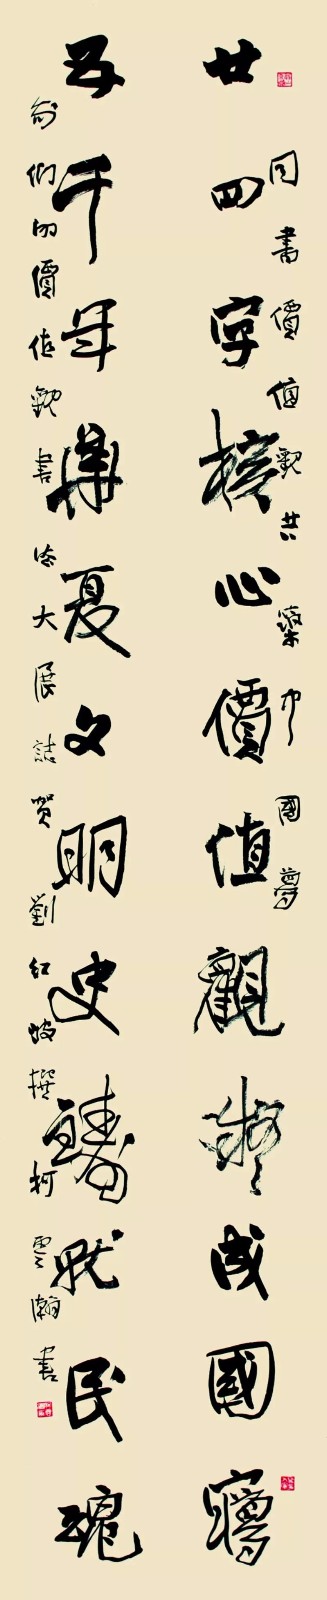 同書價值觀共築中國夢
廿四字核心價值觀凝成國夢
五千年華夏文明史鑄就民魂
我們的價值觀書法大展誌賀劉紅撰柯雲瀚書